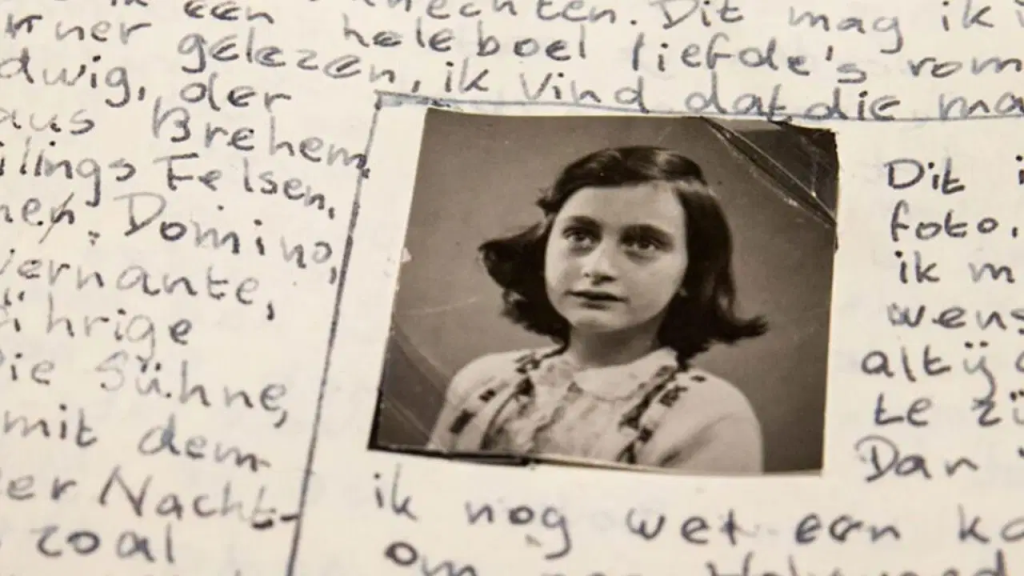 ik een
Dit mag ik
gelezen, heleboel liefde's rom
dwig, der ik vind dat die ma
aus Brehem
ilings Felsen,
Domino,
ernante,
hrige
ie Sühne,
mit dem
er Nacht-
zoal
Dit i
foto,
ik m
wens
altijd
te zij
Dan
ik nog wel een ka
om